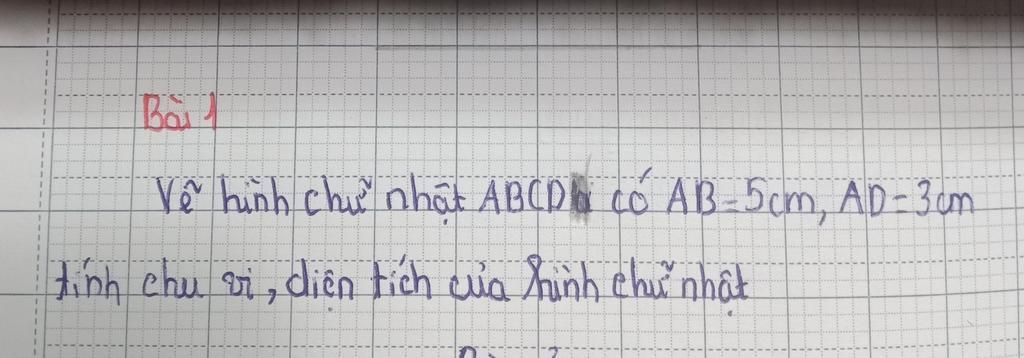 Bài 1
Vẽ hình chữ nhật ABCD có AB = 5cm, AD = 3cm
tính chu vi, diện tích của hình chữ nhật